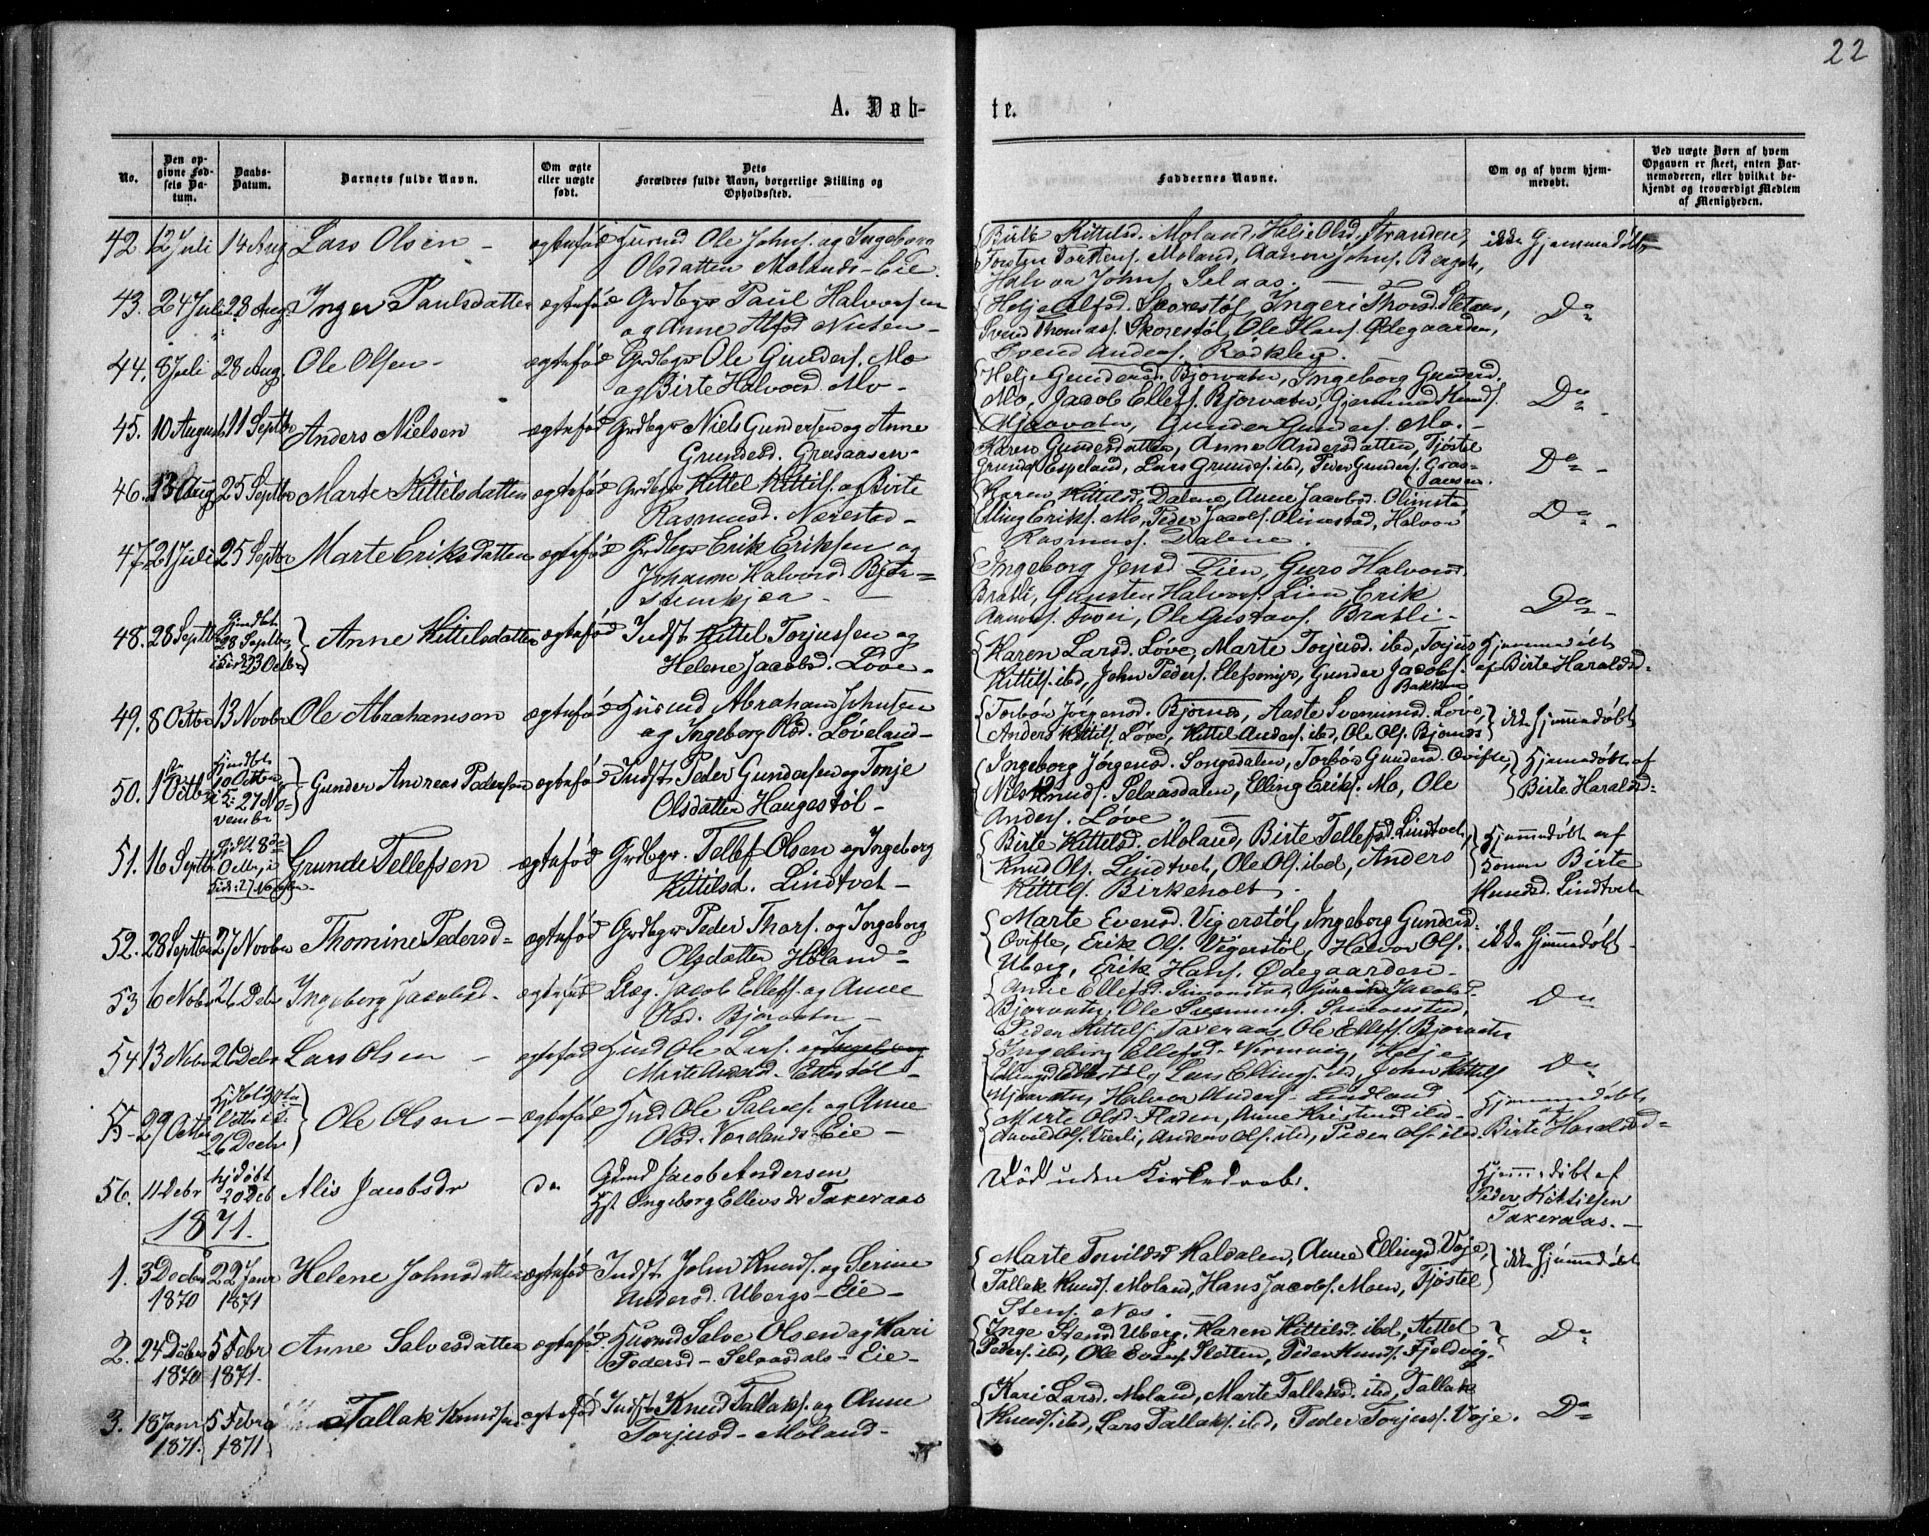 22
A. Døb-
te.
No.
Den opgivne Fødsels Datum.
Daabs-Datum.
Barnets fulde Navn.
Om ægte eller uægte født.
Dets Forældres fulde Navn, borgerlige Stilling og Opholdssted.
Faddernes Navne.
Om og af hvem hjemmedøbt.
Ved uægte Børn af hvem Opgaven er skeet, enten Barnemoderen, eller hvilket bekjendt og troværdigt Medlem af Menigheden.
42. 12 Juli 14 Aug Lars Olsen - ægtefød Husmd Ole Johns. og Ingeborg
Olsdatter Molands-Eie.
Birte Kittelsd. Moland, Helje Olsd. Stranden,
Torsten Torstens. Moland, Aanon Johns. Berge,
Halvor Johns. Selaas. -
ikke Hjemmedøbt
43. 24 Juli 28 Aug. Inger Paulsdatter ægtefød Grdbgr Paul Halvorsen
og Anne Alfsd.
Helje Alfsd. Skorestøl, Ingeri Thorsd. Sletten,
Svend Thomass. Skorestøl, Ole Hans. Ødegaarden,
Svend Anders.
Do
44. 8 Juli 28 Aug. Ole Olsen - ægtefød Grdbgr Ole Gunders. Mo
og Birte Halvorsd. Mo -
Helje Gundersd. Bjorvatn, Ingeborg Gundersd.
Mo, Jacob Ellefs. Bjorvatn, Gjermund Knuds.
Mjaavatn, Gunder Gunders. Mo. -
Do
45. 10 August 11 Septbr Anders Nielsen ægtefød Grdbgr Niels Gundersen og Anne
Grundesd. Graaaasen -
Karen Gundersdatter, Anne Andersdatter, Tjøstel
Grundes. Espeland, Lars Grundes. ibd, Peder Gunders. Graa-
aasen.
Do -
46. 13 Aug 25 Septbr Marte Kittelsdatter ægtefød Grdbgr Kittel Kittils. og Birte
Rasmusd. Nærestad -
Karen Kittelsd. Dalene, Anne Jacobsd. Olimstad
Elling Eriks. Mo, Peder Jacobs. Olimstad, Halvor
Rasmuss. Dalene.
Do -
47. 21 Juli 25 Septbr Marte Eriksdatter ægtefød Grdbgr Erik Eriksen og
Johanne Halvorsd.
Ingeborg Jensd Lien, Guro Halvorsd.
Bratli, Gunsten Halvors. Lien Erik
Ole Gustavs. Bratli -
Do -
48. 28 Septbr Hjmdbt 28 Septbr, i Kirk. 23 Octbr Anne Kittelsdatter ægtefød Indst Kittel Torjussen og
Helene Jacobsd. Løve -
Karen Larsd. Løve, Marte Torjusd. ibd, Torjus
Kittils. ibd, John Peders. Elefsmyr, Gunder Jacobs.
Bakken
Hjemmedøbt
af Birte Haraldsd-
49. 8 Octbr 13 Novbr Ole Abrahamsen ægtefød Husmd Abraham Johnsen
og Ingeborg Olsd. Løveland -
Torbør Jørgensd. Bjørnes, Aaste Svenumsd. Løve,
Anders Kittils. Løve, Kittel Anders. ibd, Ole Ols. Bjørnes
ikke Hjemmedøbt
50. 1ste Octbr Hjmdbt 10 Octbr, i K: 27 November Gunder Andreas Pedersen ægtefød Indst. Peder Gundersen og Tonje
Olsdatter Haugestøl -
Ingeborg Jørgensd. Songedalen, Torbør Gundersd. Ovifte,
Nils Knuds. Selaasdalen, Elling Eriks. Mo, Ole
Anders. Løve -
Hjemmedøbt af
Birte Haraldsd-
51. 16 Septbr 8de Octbr, i Kirk: 27 Novbr Grunde Tellefsen ægtefød Grdbgr. Tellef Olsen og Ingeborg
Kittilsd. Lindtvet -
Birte Kittelsd. Moland, Birte Tellefsd. Lindtvet,
Knud Ols. Lindtvet, Ole Ols. ibd, Anders
Kittils. Birkeholt.
Hjemmedøbt af
Konen Birte
Knudsd. Lindtvet
52. 28 Septbr 27 Novbr Thomine Pedersd- ægtefød Grdbgr Peder Thors. og Ingeborg
Olsdatter Høland -
Marte Evensd. Vigerstøl, Ingeborg Gundersd.
Ovifte, Erik Ols. Vegerstøl, Halvor Ols.
Uberg, Erik Hans. Ødegaarden -
ikke Hjemmedøbt
53 6 Novbr 26 Debr Ingeborg Jacobsd. ægtefød Jacob Ellefs. og Anne
Olsd. Bjorvatn -
Anne Ellefsd. Simonstad, Jacobsd.
Bjorvatn, Ole Svenums. Simonstad,
Peder Kittels. Taxeraas, Ole Ellefs. Bjorvatn
Do
54 13 Novbr 26 Debr Lars Olsen - ægtefød Husmd Ole Lars. og Ingeborg
Marte Andersd. Ettestøl -
Ingeborg Ellefsd. Helje
Ellingsd Ettestøl, Lars Ellings. ibd, John Kittils
Mjaavatn, Halvor Anders. Lindland
Do
55 - 29 Octbr 26 Decbr Ole Olsen - ægtefød Husmd Ole Salves. og Anne
Olsd. Eie -
Marte Olsd. Anne Kristensd ibd -
Anders Ols. ibd, Peder Ols. ibd.
Hjemmedøbt
af
Birte Haraldsd-
56. 11 Debr hjdøbt 20 Deb Alis Jacobsdr do Gdmd Jacob Andersen
Hst Ingeborg Ellevsdr Taxeraas
Død uden Kirkedaab.
Hjemmedøbt af
Peder Kittilsen
Taxeraas. -
1871.
1. 3 Decbr 1870 22 Janr 1871 Helene Johnsdatter ægtefød Indst. John Knuds. og Serine
Andersd. Ubergs-Eie -
Marte Torvildsd Kaldalen, Anne Ellingsd Vøje,
Tallak Knuds. Moland, Hans Jacobs. Moen, Tjøstel
Stens. Næs.
ikke Hjemmedøbt
2. 24 Debr 1870 5 Febr 1871. Anne Salvesdatter ægtefød Husmd Salve Olsen og Kari
Pedersd - Selaasdals-Eie -
Inge Uberg, Karen Kittelsd. ibd, Kittel
Peders. ibd, Ole Evens. Sletten, Peder Knuds. Fjeldvig.
Do
3. 18 Janr 1871. 5 Febr 1871 Tallak Knudsen ægtefød Indst Knud Tallaks. og Anne
Torjusd - Moland -
Kari Larsd. Moland, Marte Tallaksd. ibd, Tallak
Knuds. ibd, Lars Tallaks. ibd, Peder Torjuss. Vøje.
Do